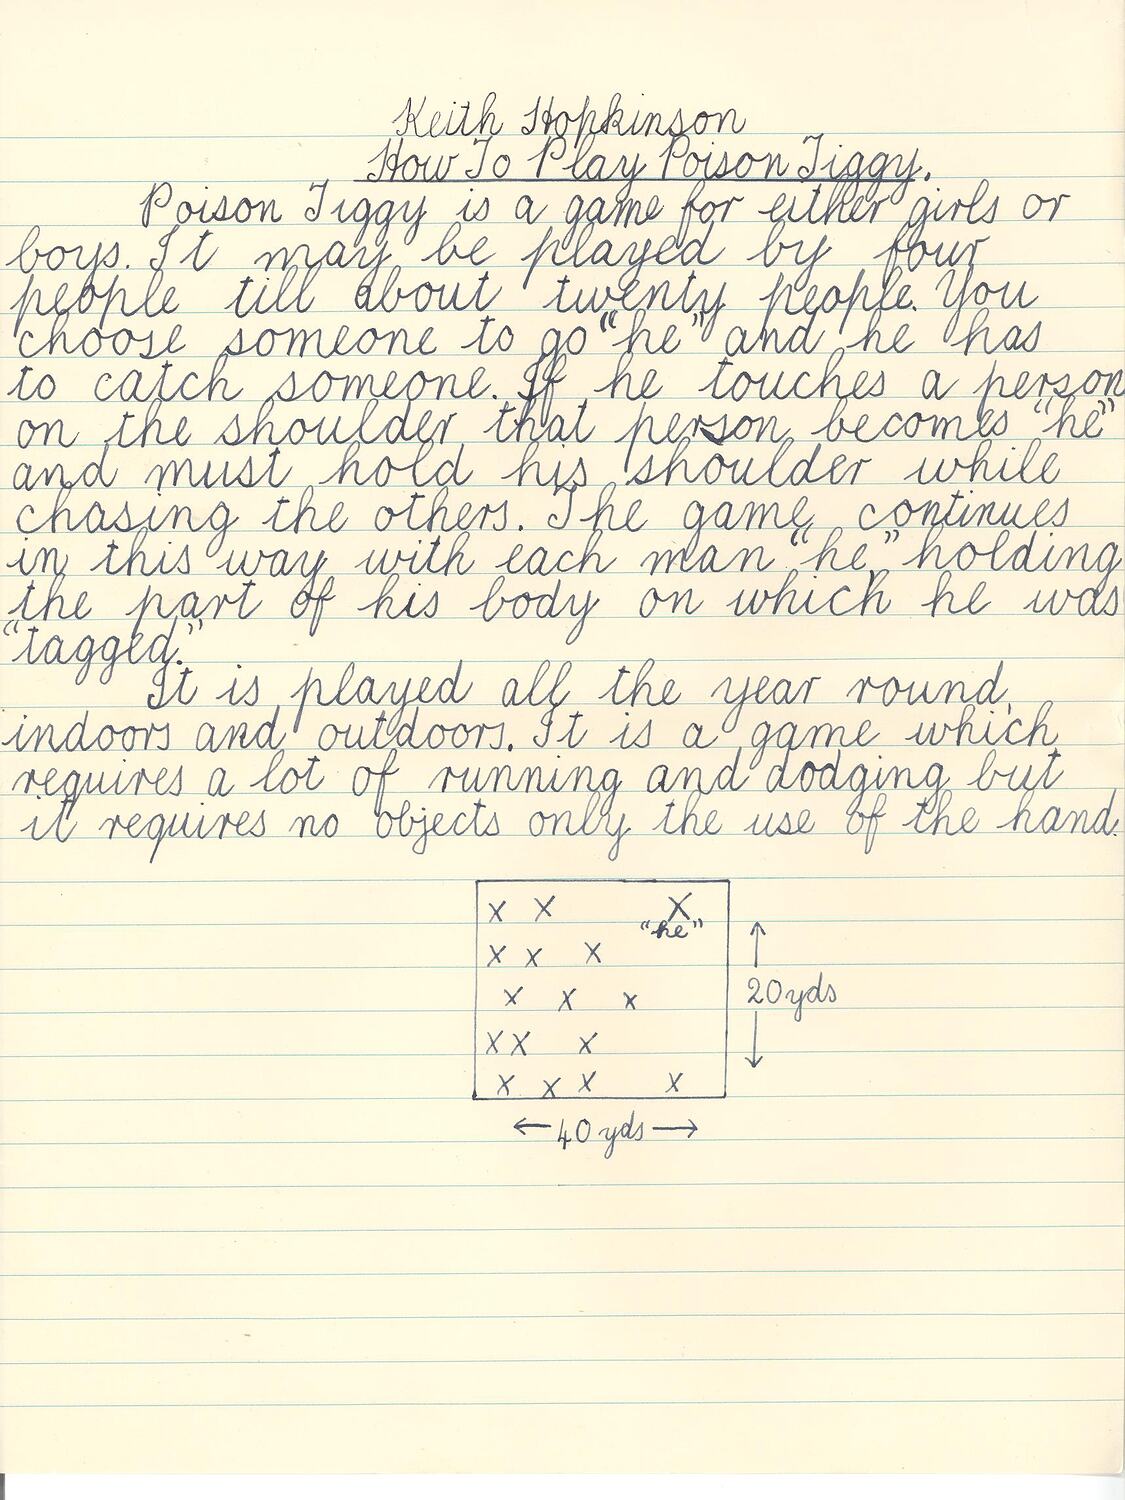 Keith Hopkinson
How To Play Poison Tiggy.
Poison Tiggy is a game for either girls or
boys. It may be played by four
people till about twenty people. You
choose someone to go "he" and he has
to catch someone. If he touches a person
on the shoulder that person becomes "he"
and must hold his shoulder while
chasing the others. The game continues
in this way with each man "he" holding
the part of his body on which he was
"tagged."
It is played all the year round,
indoors and outdoors. It is a game which
requires a lot of running and dodging but
it requires no objects only the use of the hand.
X X X
"he"
X X X
X X X
20 yds
X X X
X X X X
40 yds